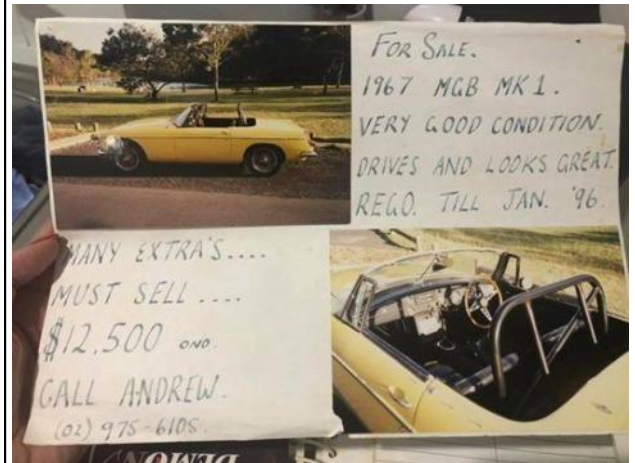 FOR SALE.
1967 MGB MK1.
VERY GOOD CONDITION.
DRIVES AND LOOKS GREAT.
REGO. TILL JAN. '96.
MANY EXTRA'S....
MUST SELL....
$12,500 ONO.
CALL ANDREW.
(02) 975-6105.
DEMON